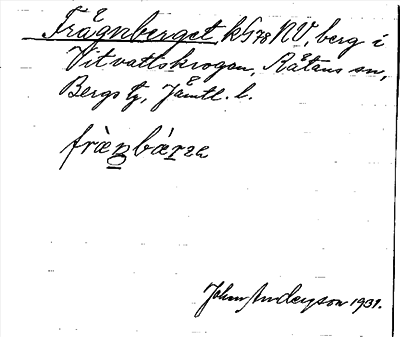 Frågnberget kG78NV, berg i
Vitvattskrogen, Råtans sn,
Bergs tg, Jämtl. l.
frànbárza
John Anderson 1931.